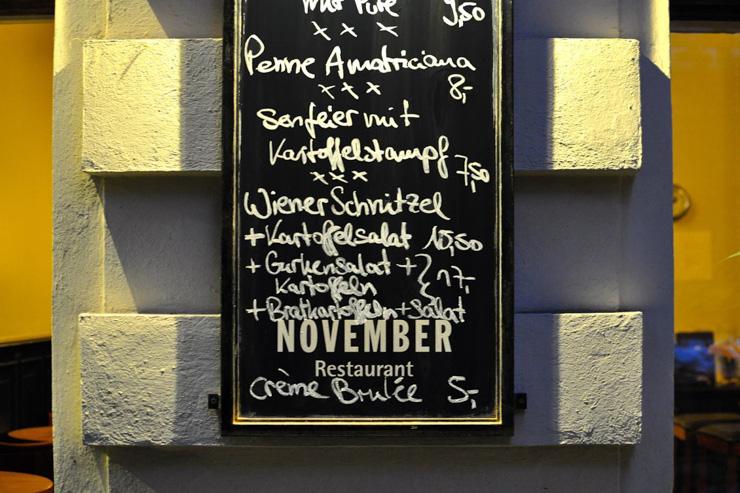 mit Püre 9,50
x x x
Penne Amatriciana
x x x 8,-
Senfeier mit
Kartoffelstampf 7,50
x x x
Wiener Schnitzel
+ Kartoffelsalat 15,50
+ Gurkensalat +
Kartoffeln } 17,-
+ Bratkartoffeln + Salat
NOVEMBER
Restaurant
Crème Brulée 5,-